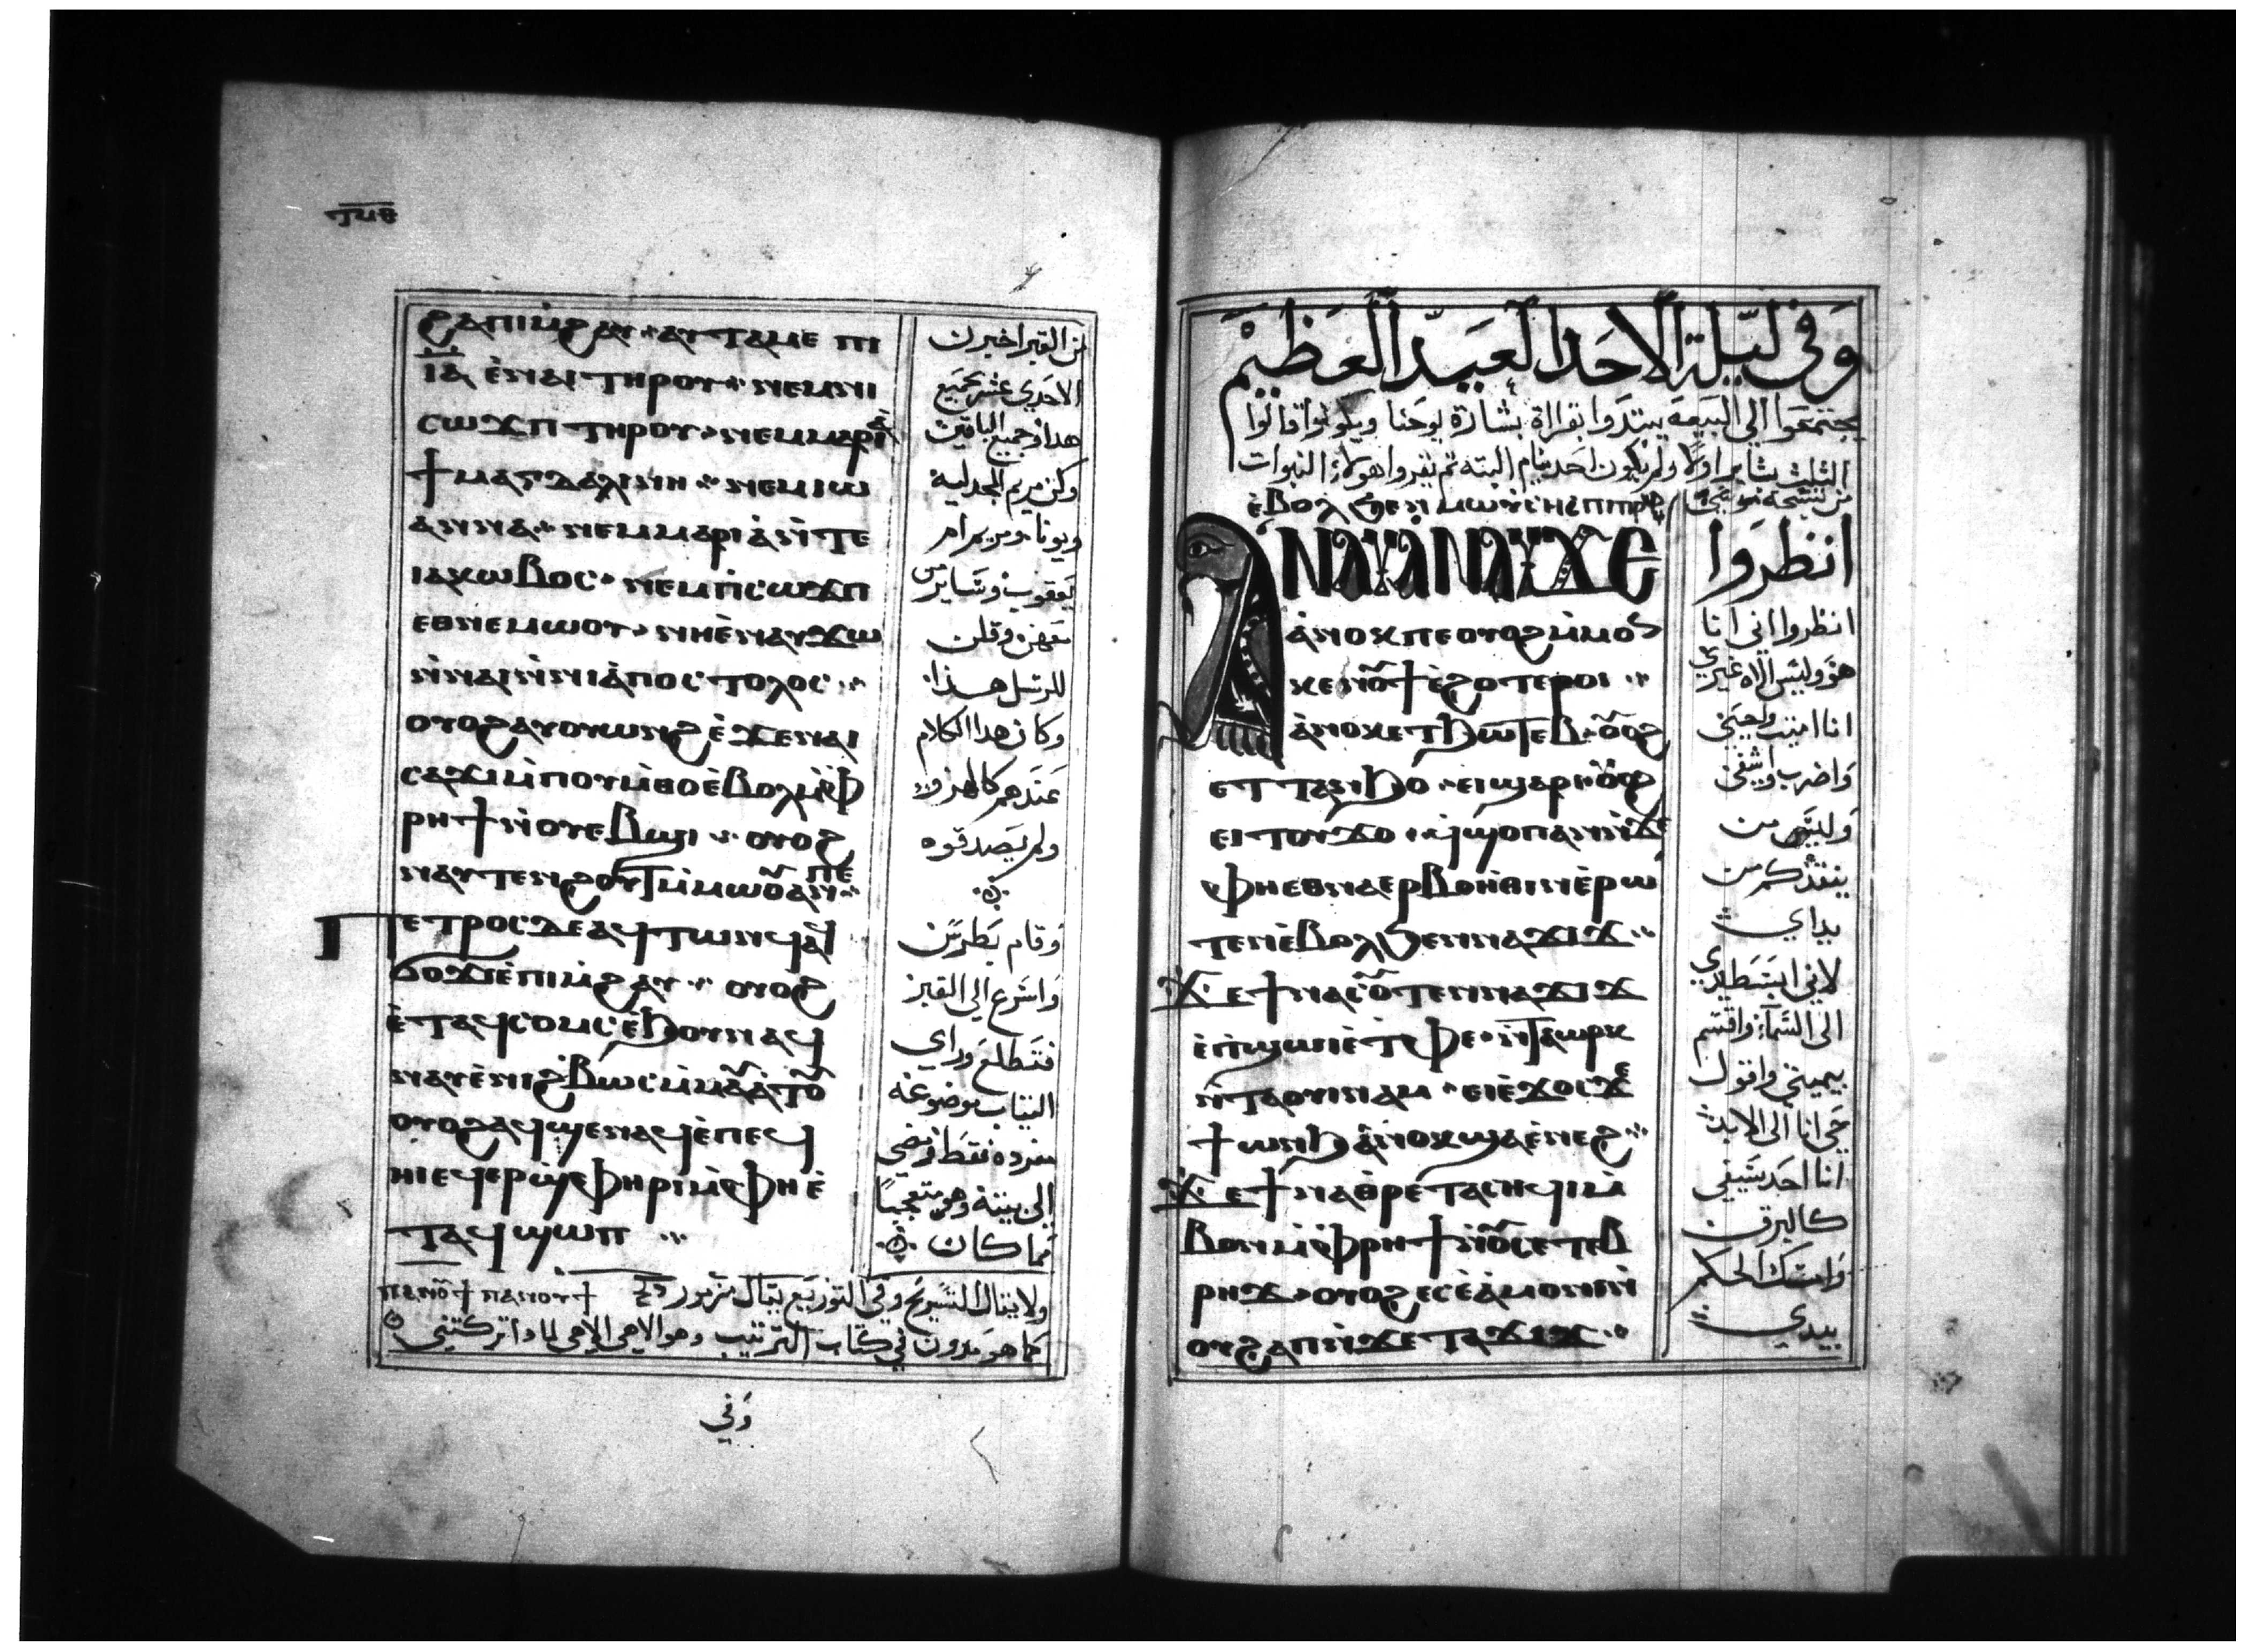 ϩⲁ ⲡⲓⲙ̀ϩⲁⲩ ⁖ ⲁⲩⲧⲁⲙⲉ ⲡⲓ
ⲓ̅ⲁ̅ ⲉ̀ⲛⲁⲓ ⲧⲏⲣⲟⲩ ⁖ ⲛⲉⲙ ⲛⲓ
ⲥⲱϫⲡ ⲧⲏⲣⲟⲩ ⁖ ⲛⲉⲙ ⲙⲁⲣⲓⲁ̀
ϯⲙⲁⲅⲇⲁⲗⲓⲛⲏ ⁖ ⲛⲉⲙ ⲓⲱ
ⲁⲛⲛⲁ ⁖ ⲛⲉⲙ ⲙⲁⲣⲓⲁ̀ ⲛ̀ⲧⲉ
ⲓⲁⲕⲱⲃⲟⲥ ⁖ ⲛⲉⲙ ⲡ̀ⲥⲱϫⲡ
ⲉⲑⲛⲉⲙⲱⲟⲩ ⁖ ⲛⲏ ⲉ̀ⲛⲁⲩϫⲱ
ⲛ̀ⲛⲁⲓ ⲛ̀ⲛⲓⲁ̀ⲡⲟⲥⲧⲟⲗⲟⲥ ⁖
ⲟⲩⲟϩ ⲁⲩⲟⲩⲱⲛϩ ⲉ̀ϫⲉⲛⲁⲓ
ⲥⲁϫⲓ ⲙ̀ⲡⲟⲩⲙ̀ⲑⲟ ⲉ̀ⲃⲟⲗ ⲙ̀ⲫ
ⲣⲏϯ ⲛ̀ⲟⲩⲉⲃϣⲓ ⁖ ⲟⲩⲟϩ
ⲛⲁⲩⲧⲉⲛϩⲟⲩⲧ ⲙ̀ⲙⲱⲟ̃ ⲁⲛ ⲡⲉ ⁖
ⲡⲉⲧⲣⲟⲥ ⲇⲉ ⲁϥⲧⲱⲛϥ ⲁϥ
ϭⲟϫⲓ ⲉ̀ⲡⲓⲙ̀ϩⲁⲩ ⁖ ⲟⲩⲟϩ
ⲉ̀ⲧⲁϥⲥⲟⲙⲥ ⲉ̀ϧⲟⲩⲛ ⲁϥ
ⲛⲁⲩ ⲉ̀ⲛⲓϩ̀ⲃⲱⲥ ⲙ̀ⲙⲁ̃ⲁ̀ⲧⲟ̃
ⲟⲩⲟϩ ⲁϥϣⲉⲛⲁϥ ⲉ̀ⲡⲉϥ
ⲏⲓ ⲉϥⲉⲣϣ̀ⲫⲏⲣⲓ ⲙ̀ⲫⲏ ⲉ̀
ⲧⲁϥϣⲱⲡⲓ ⁖
من القبر اخبرن
الاحدي عشر بجميع
هذا وجميع الباقين
وكن مريم المجدلية
ويونا ومريم ام
يعقوب وساير من
معهن وقلن
للرسل هذا
وكان هذا الكلام
عندهم كالهزو
ولم يصدقوه
وقام بطرس
واسرع الي القبر
فتطلع وراي
التياب موضوعة
مفردة فقط ومضي
الي بيته وهو متعجبا
مما كان
ولا يقال التسريح وفي التوزيع يقال مزمور ⲡⲁⲛⲟ̃ϯ ⲡⲁⲛⲟⲩϯ
كما هو مدون في كتاب الترتيب وهو الاهي الاهي لماذا تركتني
وفي
وفي ليلة الاحد العيد العظيم
يجتمعوا الي البيعة يبتدوا بقراة بشارة يوحنا
احد ينام البتة تم يقروا هولاء النبوات
ⲉ̀ⲃⲟⲗ ϧⲉⲛ ⲙⲱⲩ̀ⲥⲏⲥ ⲡⲓⲡⲣⲟ
ⲁⲛⲁⲩ ⲁⲛⲁⲩ ϫⲉ
ⲁ̀ⲛⲟⲕ ⲡⲉ ⲟⲩⲟϩ ⲙ̀ⲙⲟⲛ
ⲕⲉⲛⲟ̃ϯ ⲉ̀ϩⲟⲧⲉⲣⲟⲓ ⁖
ⲁ̀ⲛⲟⲕ ⲉⲧϧⲱⲧⲉⲃ ⲟ̃ⲟϩ
ⲉⲧⲧⲁⲛϧⲟ ⁖ ⲉⲓϣⲁⲣⲓ ⲟ̃ⲟϩ
ⲉⲓⲧⲟⲩϫⲟ ⁖ ϥ̀ϣⲟⲡ ⲁⲛ ⲛ̀ϫⲉ
ⲫⲏ ⲉⲑⲛⲁⲉⲣⲃⲟⲏ̀ⲑⲓⲛ ⲉ̀ⲣⲱ
ⲧⲉⲛ ⲉ̀ⲃⲟⲗ ϧⲉⲛ ⲛⲁϫⲓϫ ⁖
ϫⲉ ϯⲛⲁⲥⲟ̃ⲧⲉⲛ ⲛⲁϫⲓϫ
ⲉ̀ⲡ̀ϣⲱⲓ ⲉ̀ⲧ̀ⲫⲉ ⁖ ⲛ̀ⲧⲁⲱⲣⲕ
ⲛ̀ⲧⲁⲟⲩⲓⲛⲁⲙ ⁖ ⲉⲓⲉ̀ϫⲟⲥ ϫⲉ
ϯⲱⲛϧ ⲁ̀ⲛⲟⲕ ϣⲁ ⲉ̀ⲛⲉϩ ⁖
ϫⲉ ϯⲛⲁⲑⲣⲉ ⲧⲁⲥⲏϥⲓ ⲙ̀
ⲃⲟⲛ ⲙ̀ⲫⲣⲏϯ ⲛ̀ⲟ̃ⲥⲉⲧⲉⲃ
ⲣⲏϫ ⁖ ⲟⲩⲟϩ ⲉⲥⲉ̀ⲁ̀ⲙⲟⲛⲓ ⲛ̀
ⲟⲩϩⲁⲡ ⲛ̀ϫⲉ ⲧⲁϫⲓϫ ⁖
انظروا
انظروا اني انا
هو وليس الاه غيري
انا اميت واحيي
واضرب واشفي
وليس من
ينقذكم من
يداي
لاني ابسط يدي
الي السماء واقسم
بيميني واقول
حي انا الي الابد
انا احد سيفي
كالبرق
وامسك الحكم
بيدي